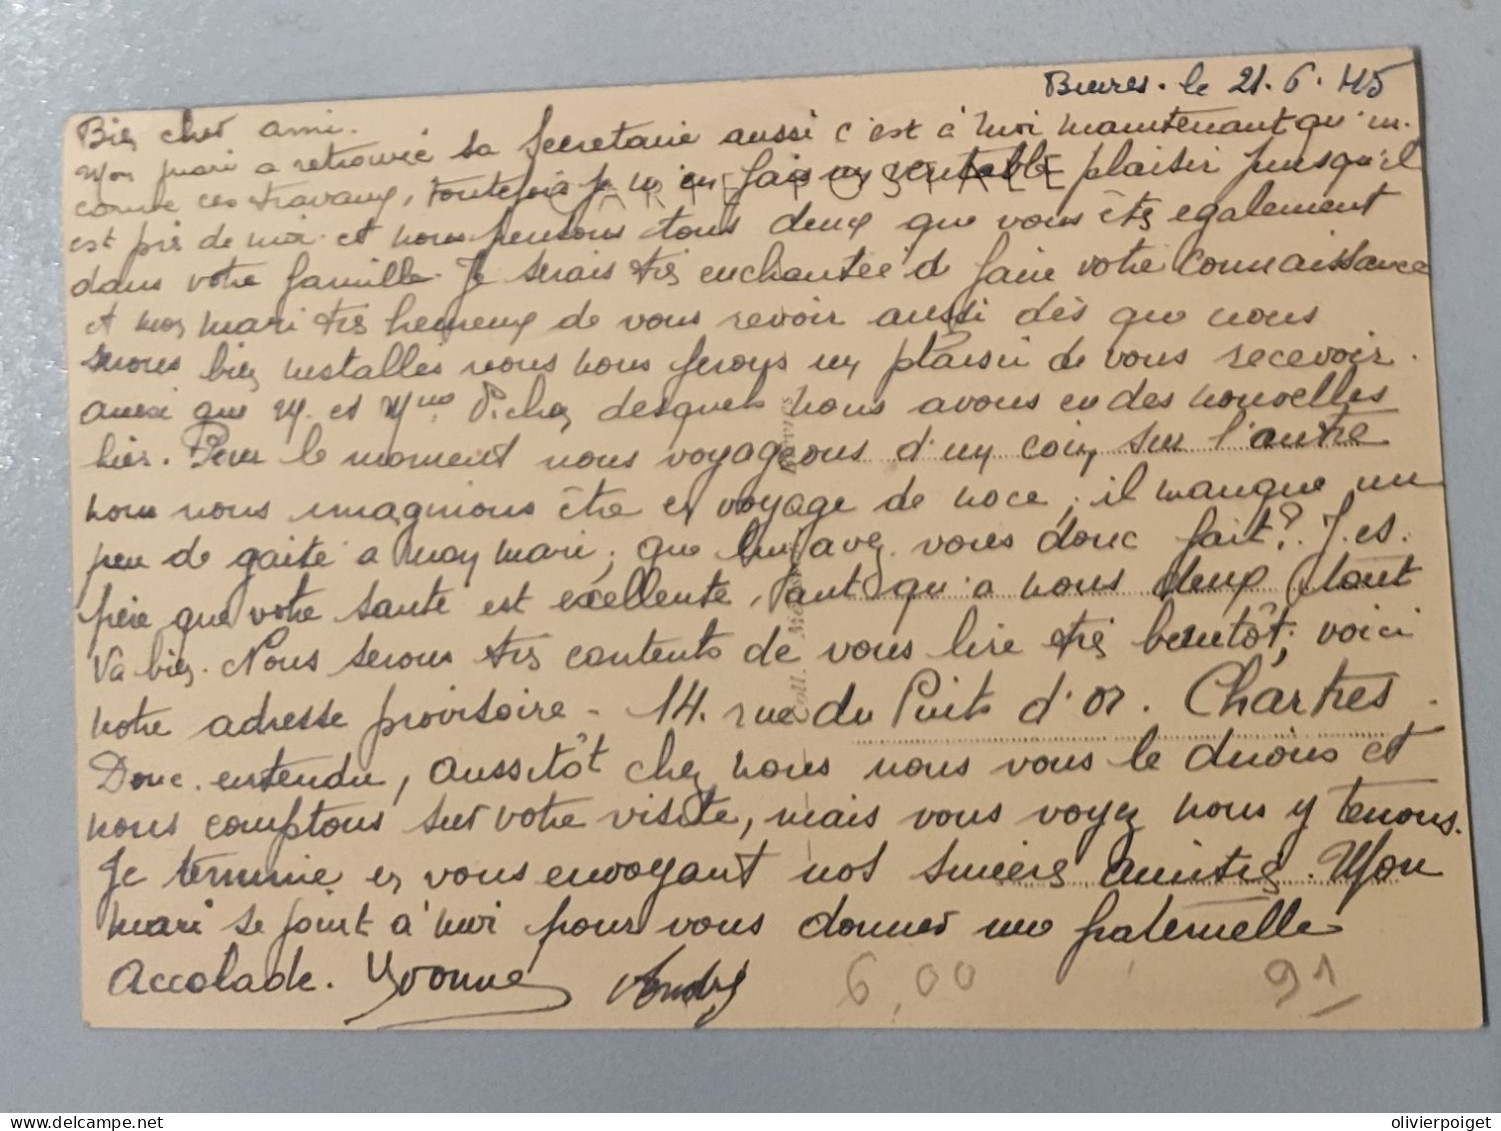 Bures. le 21.6.45
Bien cher ami.
Mon mari a retrouvé sa secretaire aussi c'est à moi maintenant qu'in-
combe ces travaux, toutefois je m'en fais un veritable plaisir puisqu'il
CARTE POSTALE
est près de moi et nous pensons tous deux que vous êtes egalement
dans votre famille. Je serais très enchantée d faire votre connaissance
et mon mari très heureux de vous revoir aussi dès que nous
serons bien installés nous nous ferons un plaisir de vous recevoir.
aussi que M. et Mme desquels nous avons eu des nouvelles
hier. Pour le moment nous voyageons d'un coin sur l'autre
nous nous imaginons être en voyage de noce, il manque un
peu de gaité a mon mari, que lui avez vous donc fait? J'es-
père que votre santé est excellente, tant qu'a nous deux tout
va bien. Nous serons très contents de vous lire très bientôt, voici
notre adresse provisoire - 14. rue du Puits d'or. Chartres.
Donc entendu, aussitôt chez nous nous vous le dirons et
nous comptons sur votre visite, mais vous voyez nous y tenons.
Je termine en vous envoyant nos sincères amitiés. Mon
mari se joint à moi pour vous donner une fraternelle
accolade. Yvonne André
6,00 91
Coll.
olivierpoiget